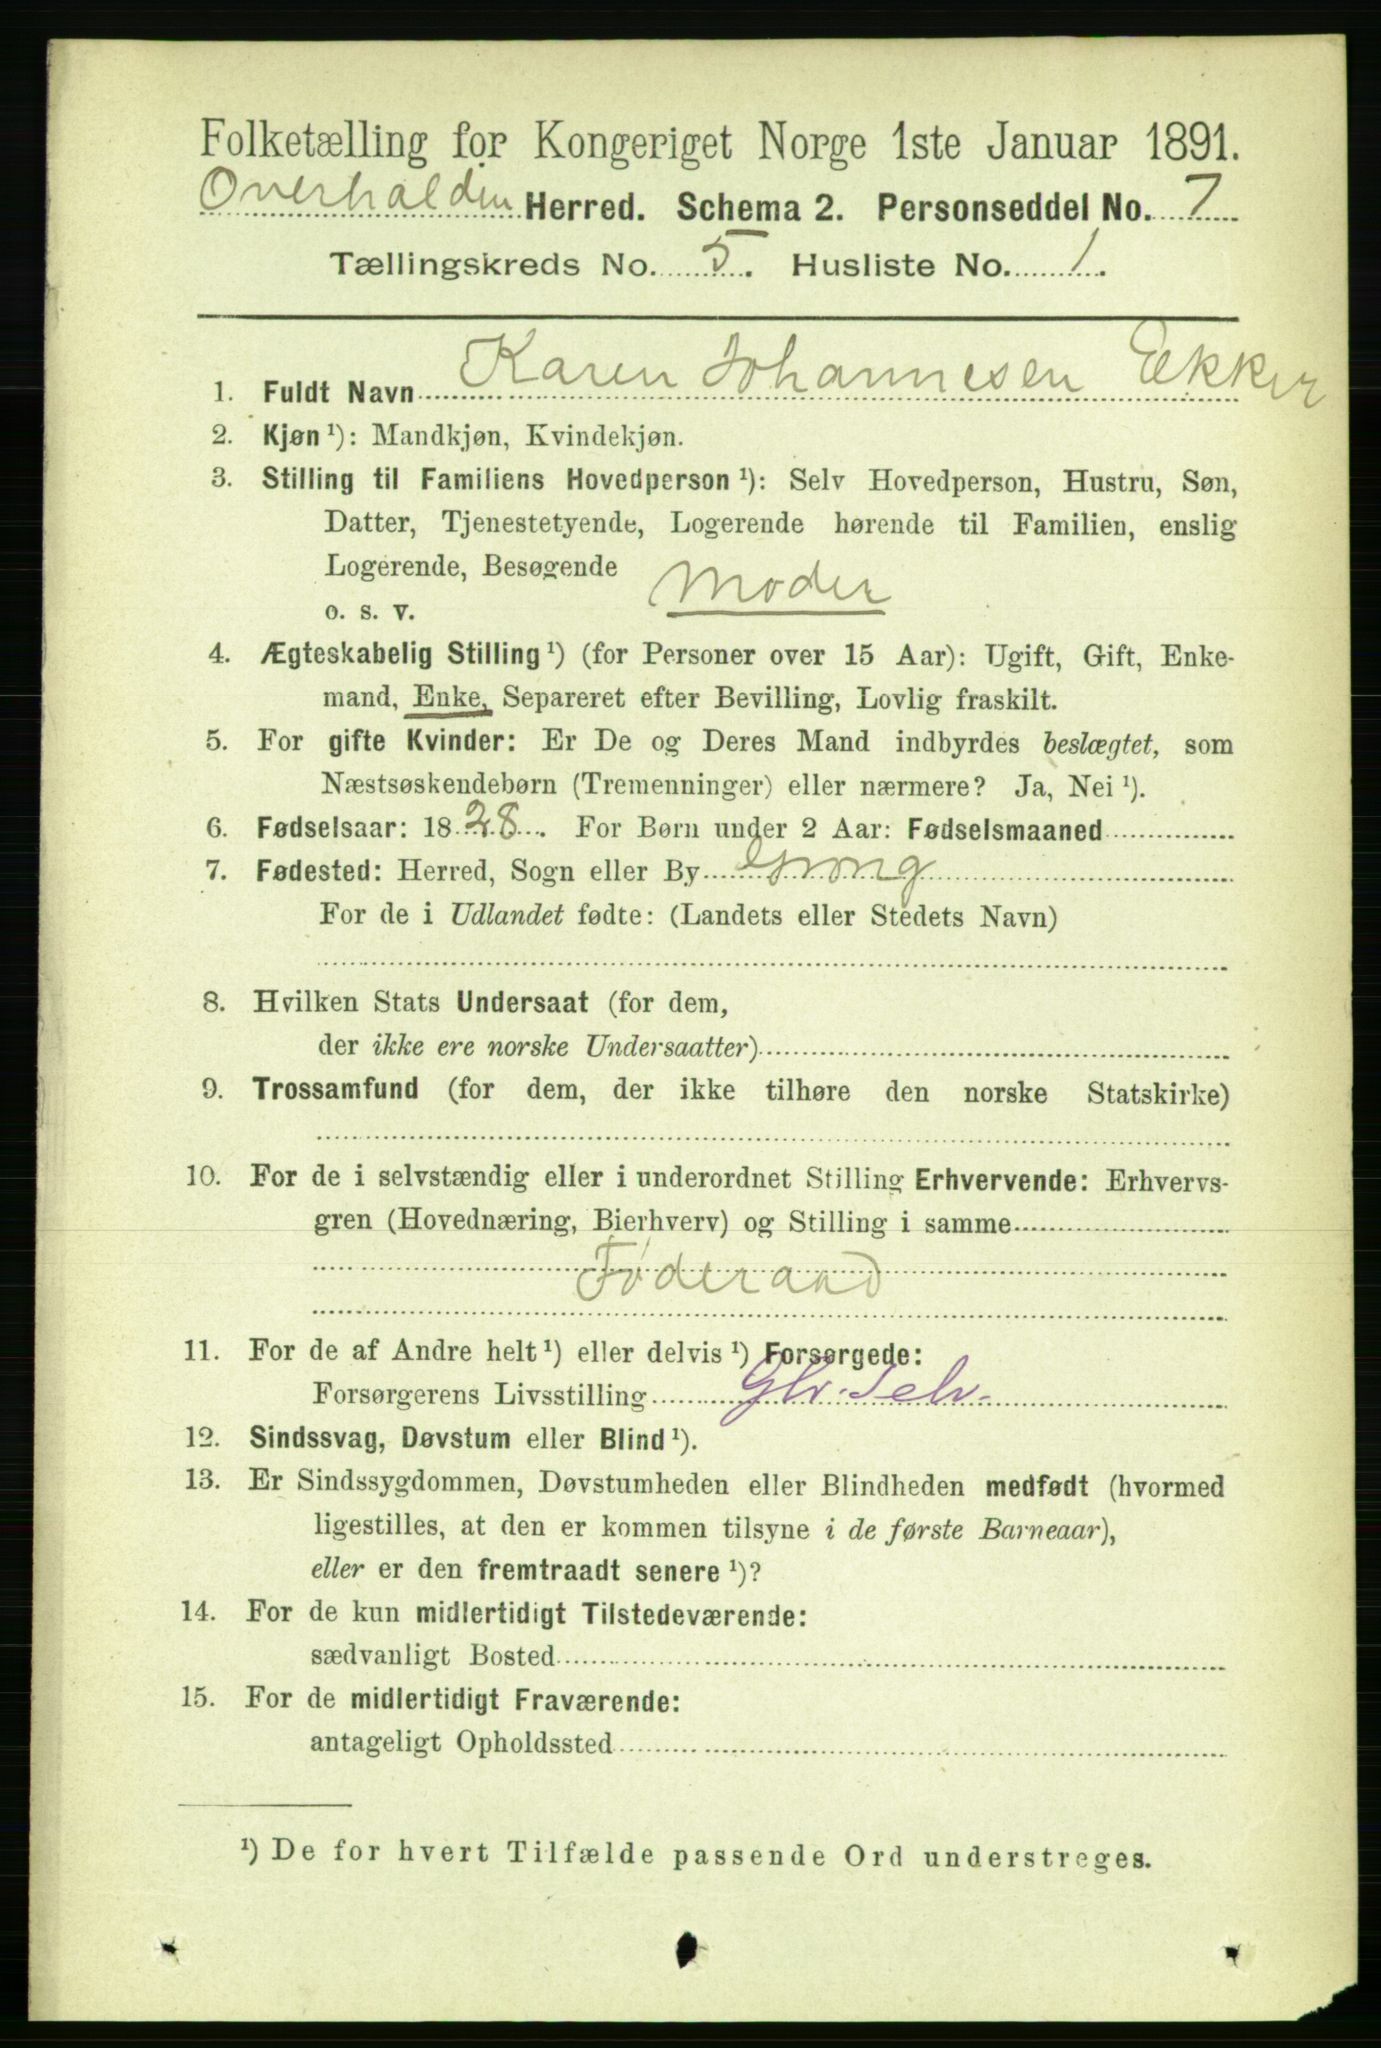 Folketælling for Kongeriget Norge 1ste Januar 1891.
Overhalden Herred. Schema 2. Personseddel No. 7
Tællingskreds No. 5. Husliste No. 1.
1. Fuldt Navn Karen Johannesen Ekker
2. Kjøn ¹): Mandkjøn, Kvindekjøn.
3. Stilling til Familiens Hovedperson ¹): Selv Hovedperson, Hustru, Søn,
Datter, Tjenestetyende, Logerende hørende til Familien, enslig
Logerende, Besøgende
o. s. v. Moder
4. Ægteskabelig Stilling ¹) (for Personer over 15 Aar): Ugift, Gift, Enke-
mand, Enke, Separeret efter Bevilling, Lovlig fraskilt.
5. For gifte Kvinder: Er De og Deres Mand indbyrdes beslægtet, som
Næstsøskendebørn (Tremenninger) eller nærmere? Ja, Nei ¹).
6. Fødselsaar: 1828. For Børn under 2 Aar: Fødselsmaaned
7. Fødested: Herred, Sogn eller By Grong
For de i Udlandet fødte: (Landets eller Stedets Navn)
8. Hvilken Stats Undersaat (for dem,
der ikke ere norske Undersaatter)
9. Trossamfund (for dem, der ikke tilhøre den norske Statskirke)
10. For de i selvstændig eller i underordnet Stilling Erhvervende: Erhvervs-
gren (Hovednæring, Bierhverv) og Stilling i samme
Føderaad
11. For de af Andre helt ¹) eller delvis ¹) Forsørgede:
Forsørgerens Livsstilling Gbr. Selv.
12. Sindssvag, Døvstum eller Blind ¹).
13. Er Sindssygdommen, Døvstumheden eller Blindheden medfødt (hvormed
ligestilles, at den er kommen tilsyne i de første Barneaar),
eller er den fremtraadt senere ¹)?
14. For de kun midlertidigt Tilstedeværende:
sædvanligt Bosted
15. For de midlertidigt Fraværende:
antageligt Opholdssted
¹) De for hvert Tilfælde passende Ord understreges.